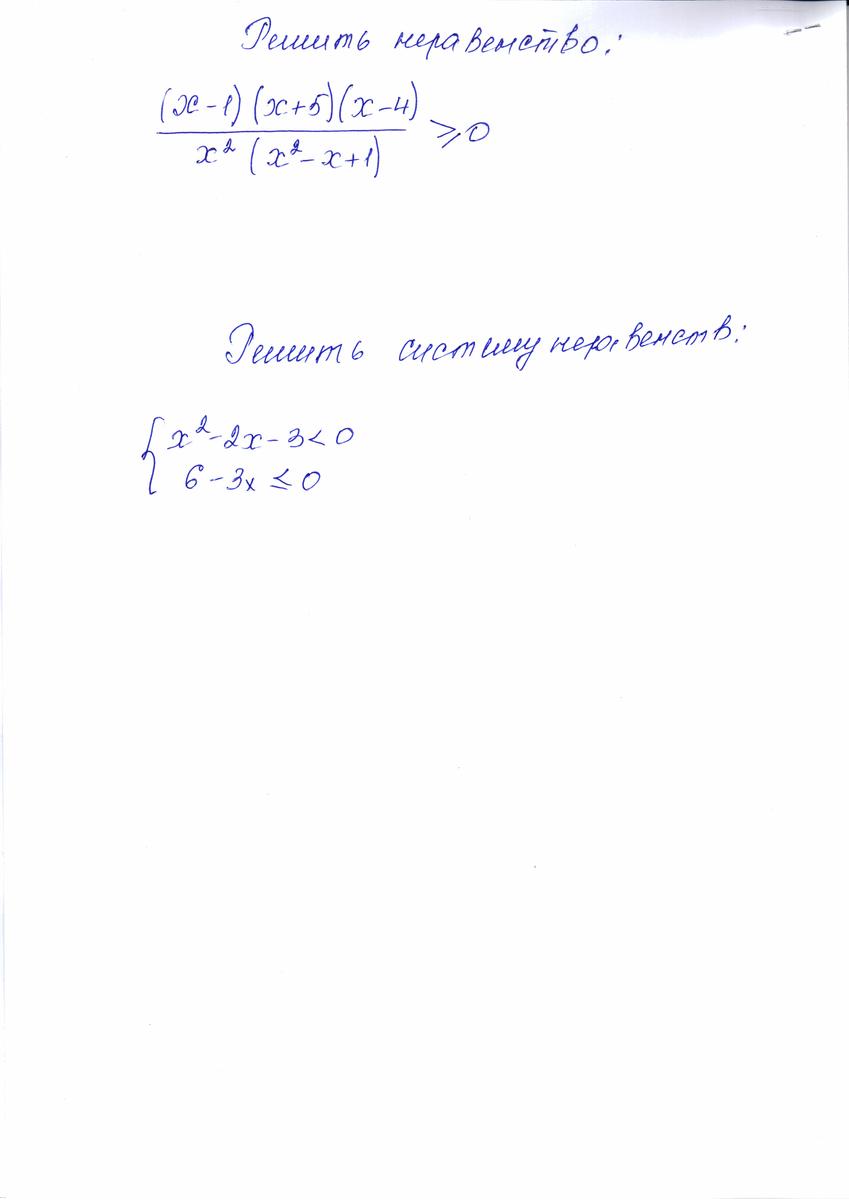 Решить неравенство:
(x-1)(x+5)(x-4)
x² (x²-x+1)
⩾0
Решить систему неравенств:
{ x²-2x-3<0
6-3x ≤ 0